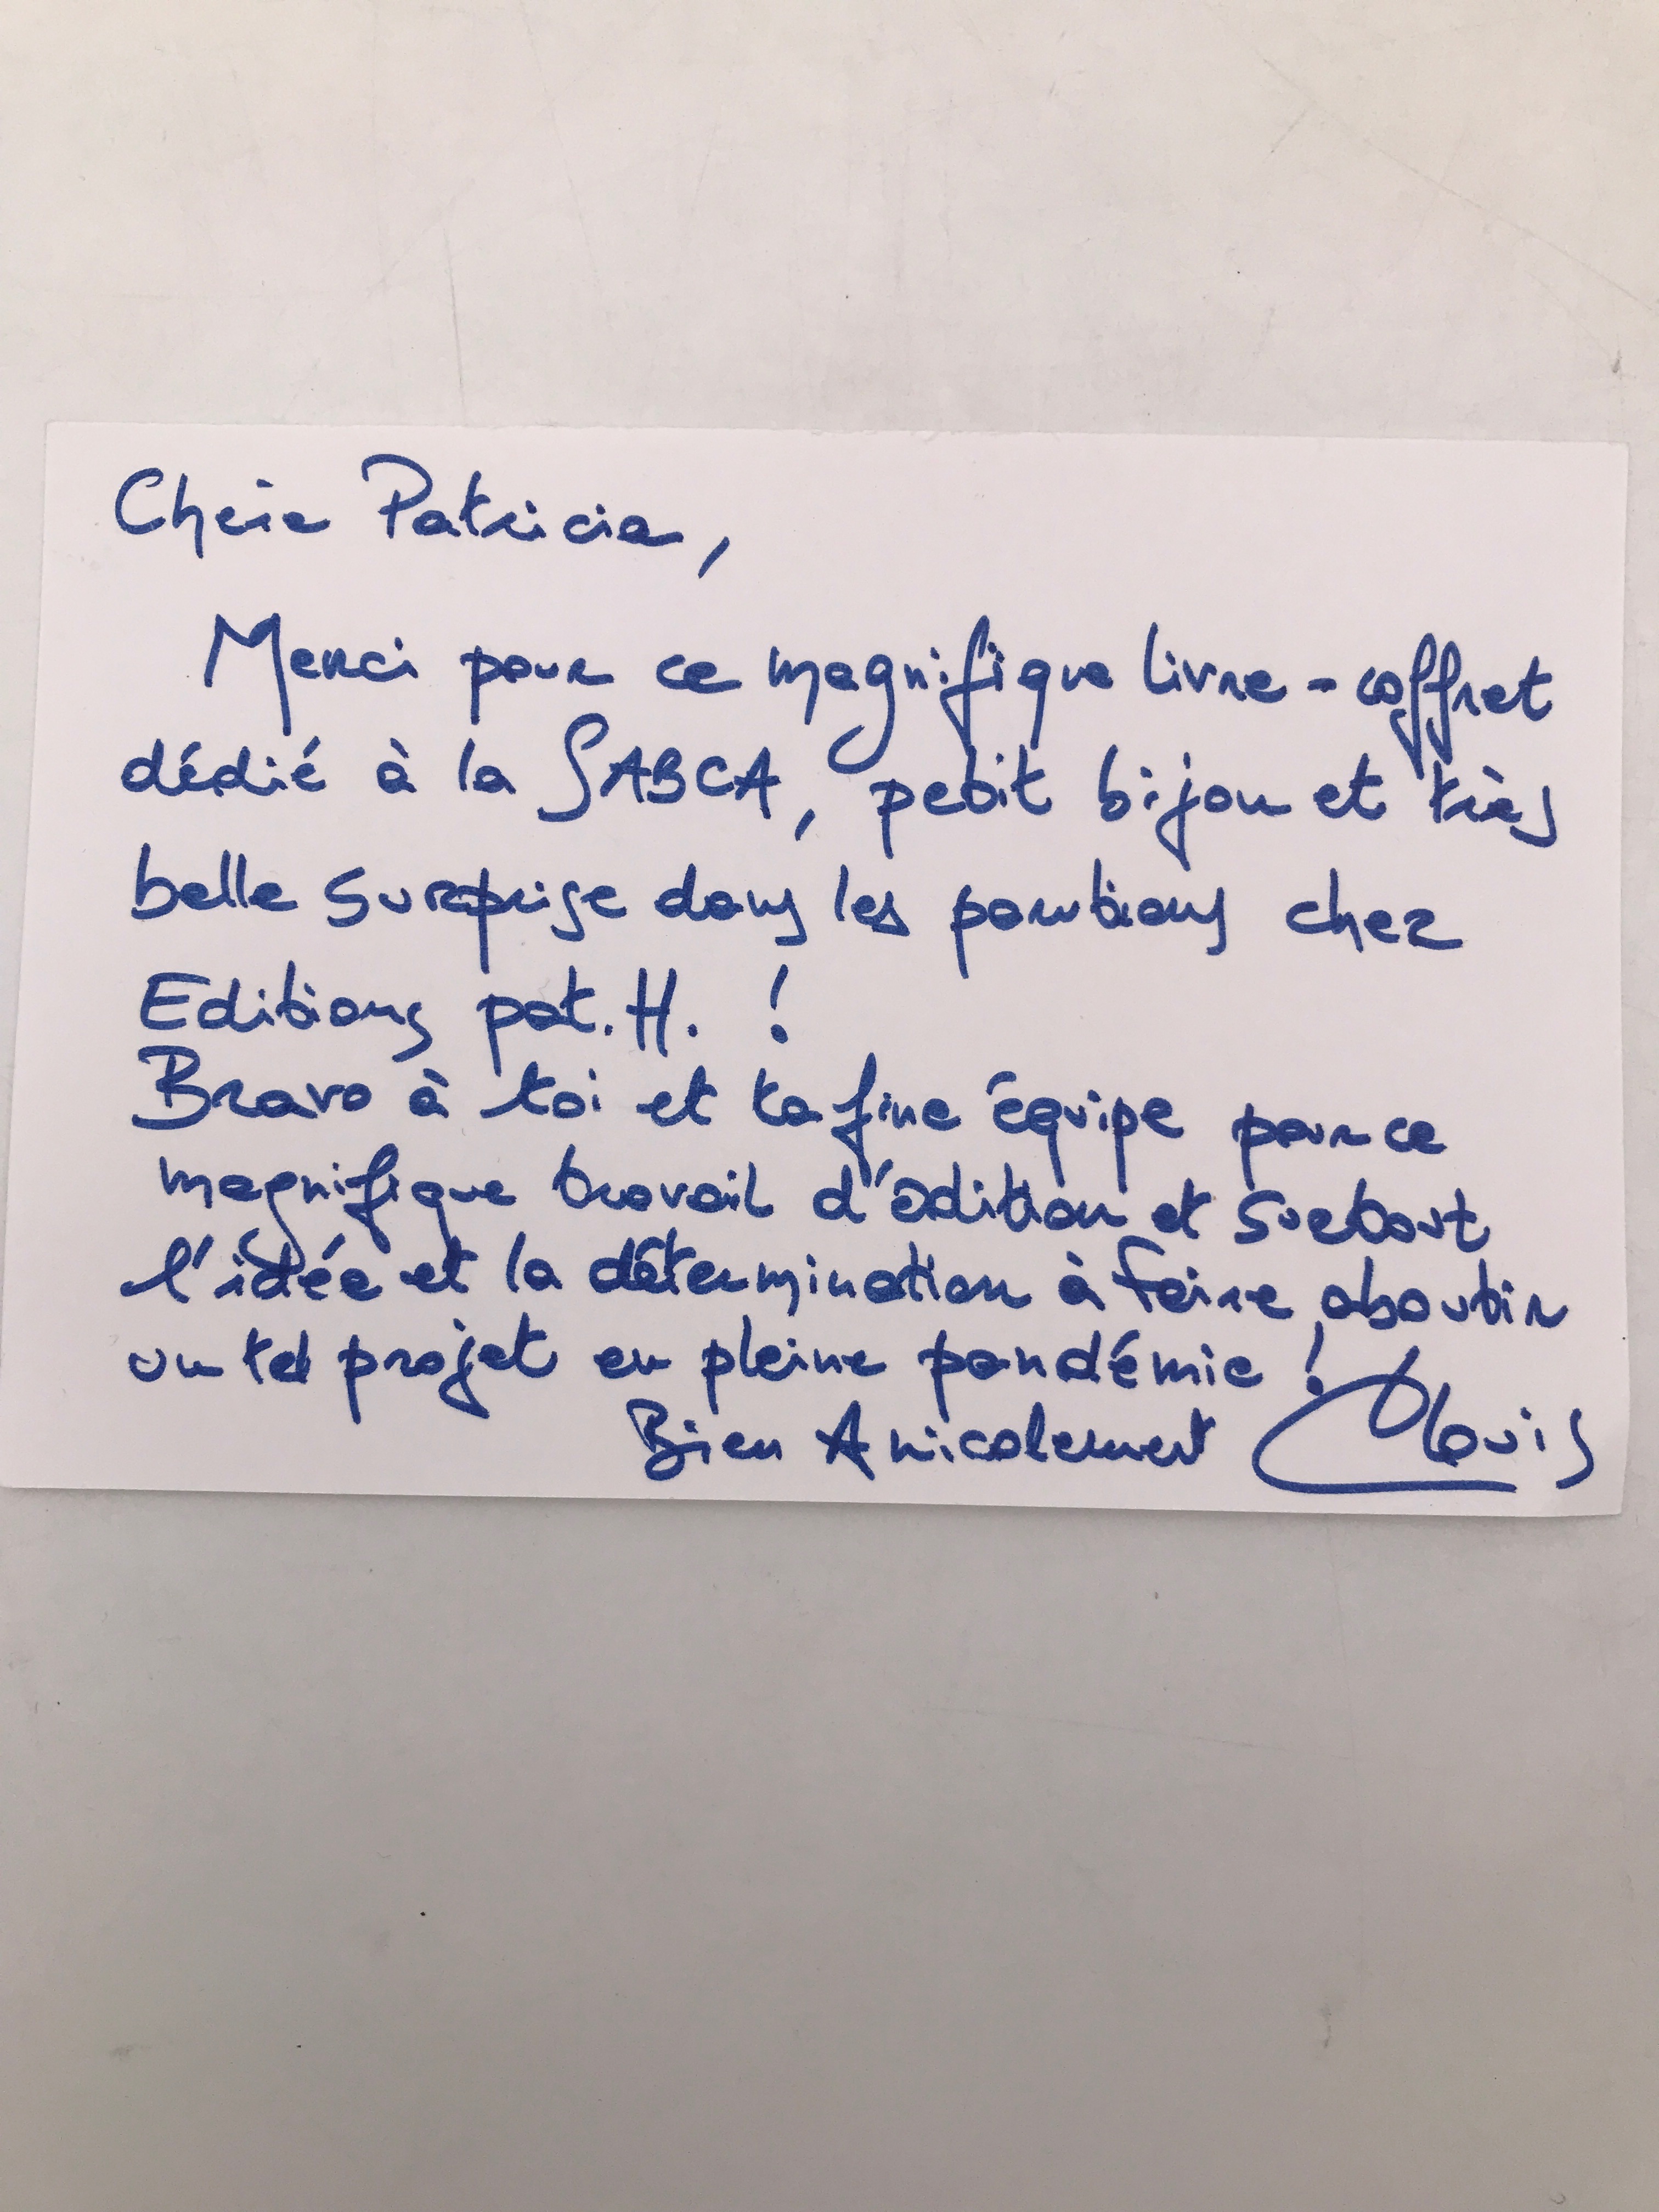 Chère Patricia,
Merci pour ce magnifique livre-coffret
dédié à la SABCA, petit bijou et très
belle surprise dans les parutions chez
Editions pat.H. !
Bravo à toi et ta fine équipe pour ce
magnifique travail d'édition et surtout
l'idée et la détermination à faire aboutir
un tel projet en pleine pandémie !
Bien Amicalement